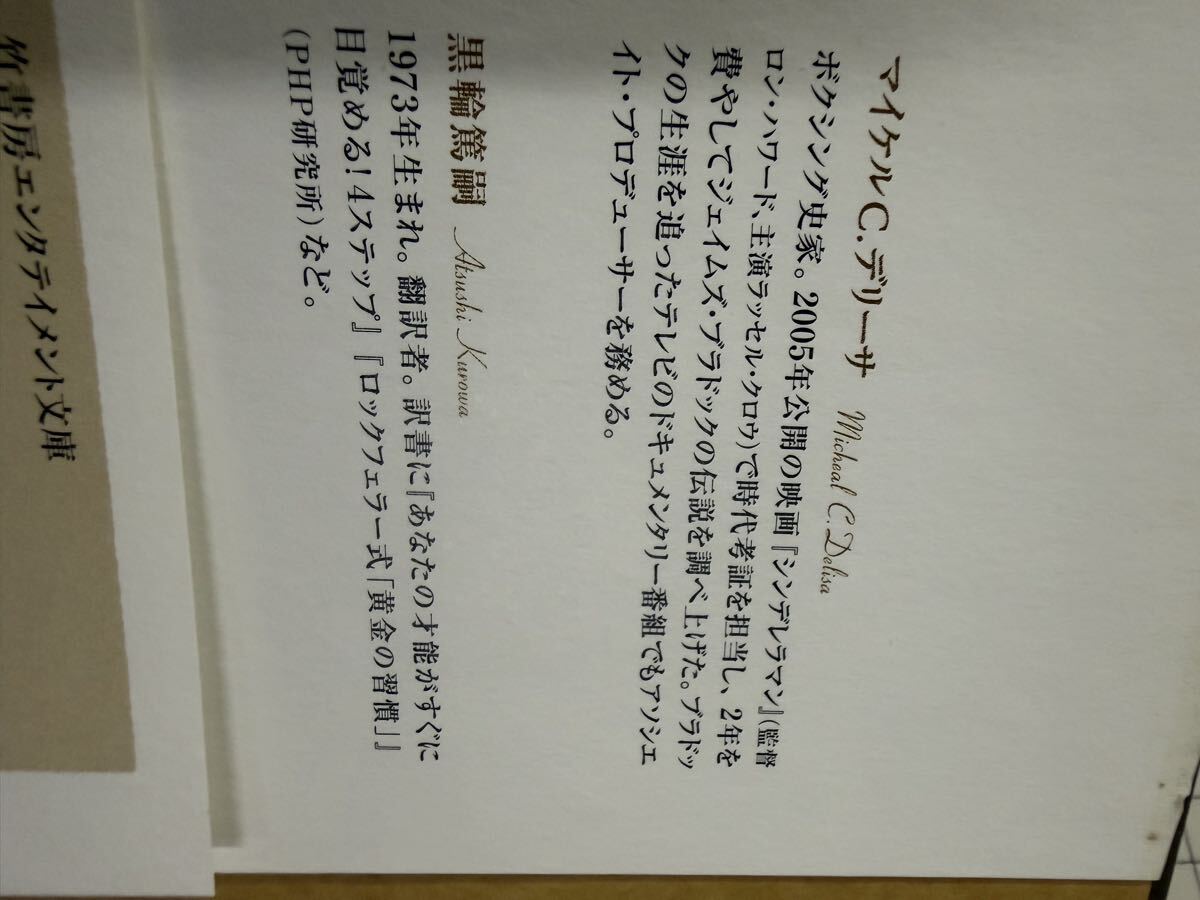 マイケルC.デリーサ Micheal C.Delisa
ボクシング史家。2005年公開の映画『シンデレラマン』(監督
ロン・ハワード、主演ラッセル・クロウ)で時代考証を担当し、2年を
費やしてジェイムズ・ブラドックの伝説を調べ上げた。ブラドッ
クの生涯を追ったテレビのドキュメンタリー番組でもアソシエ
イト・プロデューサーを務める。
黒輪篤嗣 Atsushi Kurowa
1973年生まれ。翻訳者。訳書に『あなたの才能がすぐに
目覚める!4ステップ』『ロックフェラー式「黄金の習慣」』
(PHP研究所)など。
竹書房エンタテイメント文庫